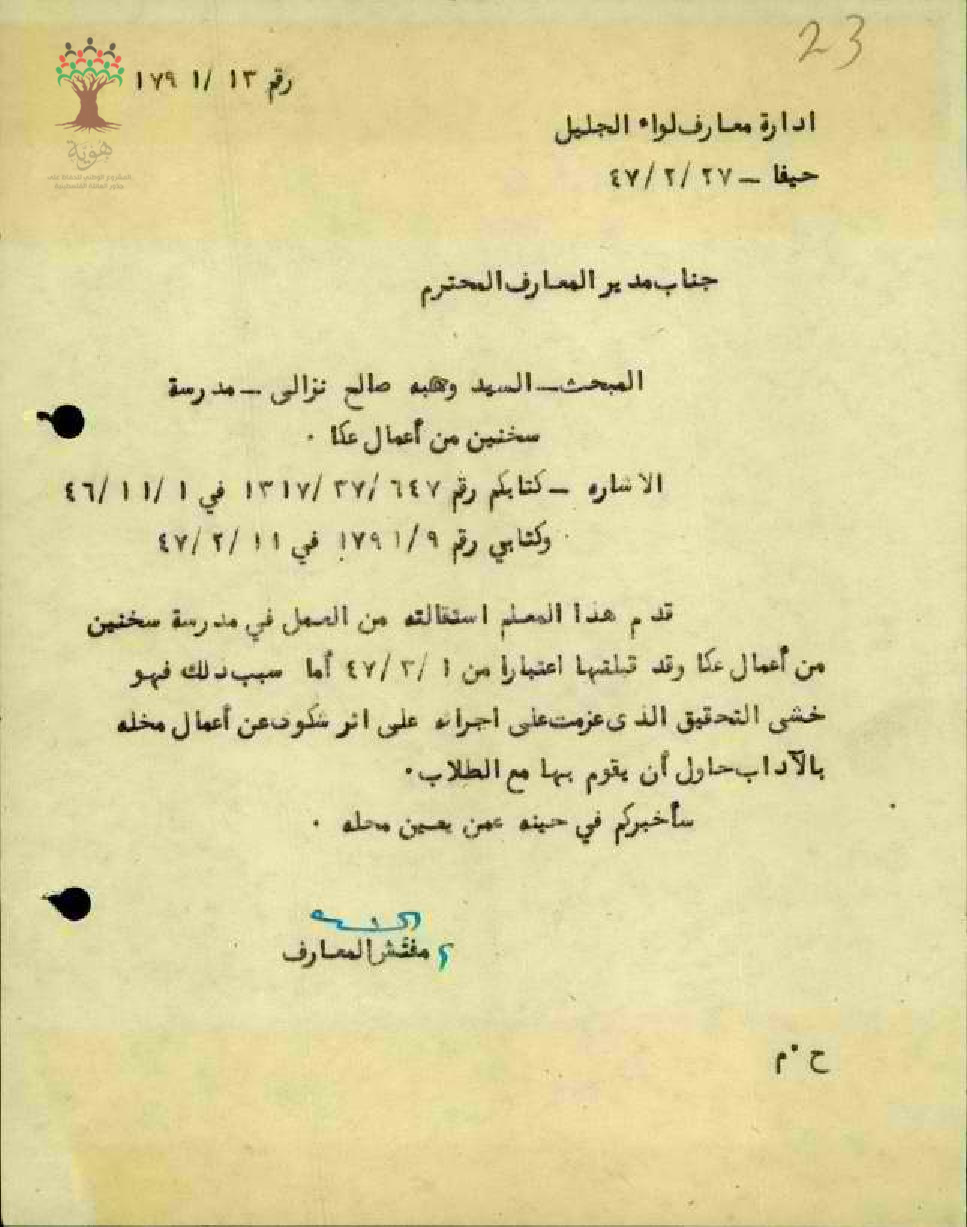 23
رقم ١٣ /١٧٩١
هوية
المشروع الوطني للحفاظ على
جذور العائلة الفلسطينية
ادارة معارف لواء الجليل
حيفا — ٤٧/٢/٢٧
جناب مدير المعارف المحترم
المبحث — السيد وهبه صالح نزالى — مدرسة
سخنين من أعمال عكا .
الاشاره — كتابكم رقم ١٣١٧/٣٧/٦٤٧ في ٤٦/١١/١
وكتابي رقم ١٧٩١/٩ في ٤٧/٢/١١
قدم هذا المعلم استقالته من العمل في مدرسة سخنين
من أعمال عكا وقد قبلتها اعتبارا من ٤٧/٣/١ أما سبب ذلك فهو
خشى التحقيق الذى عزمت على اجرائه على اثر شكوى عن أعمال مخله
بالآداب حاول أن يقوم بها مع الطلاب.
سأخبركم في حينه عمن يعين محله .
مفتش المعارف
ح . م